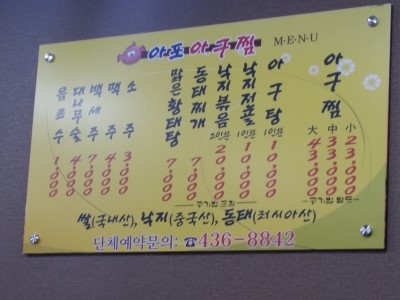 아포아구찜 M·E·N·U
아구찜
大 43,000
中 33,000
小 23,000
아구탕 1인분 10,000
낙지전골 1인분 10,000
낙지볶음 2인분 20,000
동태찌개 7,000
맑은황태탕 7,000
소주 3,000
맥주 4,000
백세주 7,000
대나무술 4,000
음료수 1,000
공기밥 포함
공기밥 별도
쌀(국내산), 낙지(중국산), 동태(러시아산)
단체예약문의: ☎436-8842